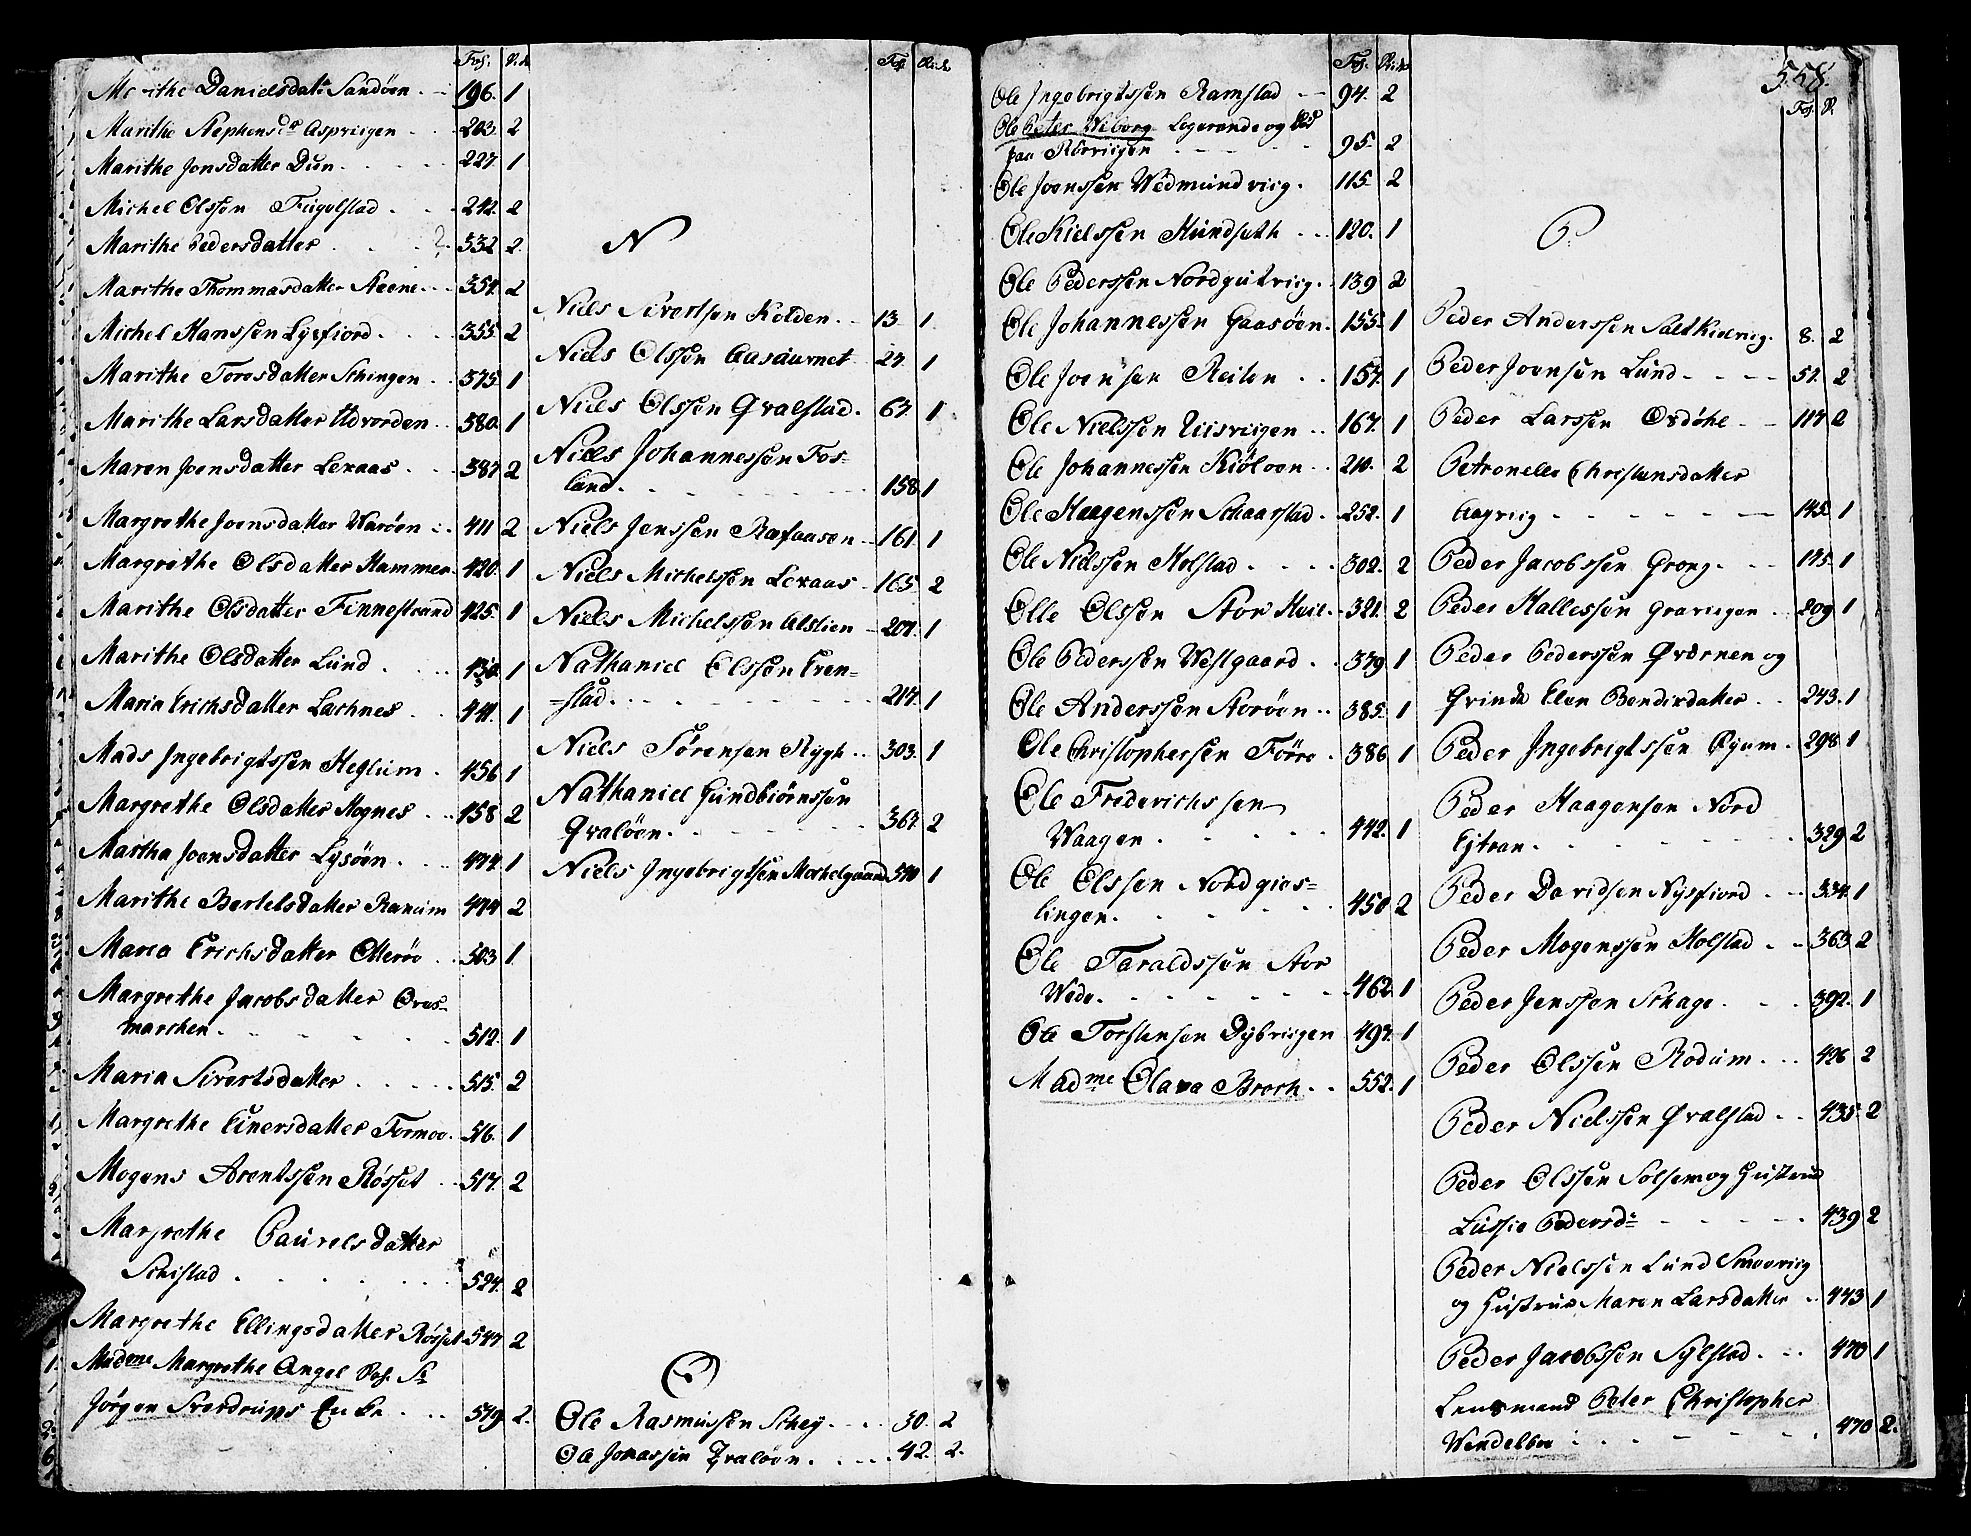 Fol: P.
Marithe Danielsdatr Sandöen 196. 1
Marithe Stephensdr Aspviigen 203. 2
Marithe Jonsdatter Duun 227. 1
Michel Olssen Fugelstad 242. 2
Marithe Pedersdatter 332 2.
Marithe Thommasdatter Steene 354. 2
Michel Hanssen Lysfiord 355. 2
Marithe Toresdatter Schingen 375. 1
Marithe Larsdatter Udvorden 380. 1
Maren Joensdatter Lexaas 387 2
Margrethe Joensdatter Waröen 411 2
Margrethe Olsdatter Hammer 420. 1
Marithe Olsdatter Finnestrand 425. 1
Marithe Olsdatter Lund 430. 1
Maria Erichsdatter Lachnes 441. 1
Mads Ingebrigtssen Heglum 456 1
Margrethe Olsdatter Hognes 458 2
Martha Joensdatter Lysöen 474. 1
Marithe Bertelsdatter Ranum 479 2
Maria Erichsdatter Otteröe 503 1
Margrethe Jacobsdatter Over-
marchen 512. 1
Maria Sivertsdatter 515. 2
Margrethe Einersdatter Formoe 516. 1
Mogens Arentssen Rösset 517. 2
Margrethe Paurelsdatter
Schistad 524. 2
Margrethe Ellingsdatter Rösset 547. 2
Madme Margrethe Angel
Jörgen Sverdrups Encke 549. 2.
Fol
N
Niels Sivertsen Kolden 13 1
Niels Olssen Aasaurnet 24. 1
Niels Olssen Qvalstad 67. 1
Niels Johannessen Fos-
land 158 1
Niels Jenssen Ræfaasen 161. 1
Niels Michelssen Lexaas 165. 2
Niels Michelssen Alslien 207. 1
Nathaniel Olssen Tren-
=stad 214. 1
Niels Sörensen Rygh 303. 1
Nathaniel Gundbiörnssen
Qvalöen 367. 2
Niels Ingebrigtsen Mechelgaard 540 1
O
Ole Rasmussen Schey 30. 2
Ole Jonassen Qvalöen 42. 2.
Fol.
Ole Ingebrigtssen Ramstad 94. 2
Ole Peter Wiborg Logerende og
paa Rörviigen 95. 2
Ole Joenssen Wedmundviig 115. 2
Ole Kielssen Hundseth 120. 1
Ole Pederssen Nordgutviig 139 2
Ole Johannessen Gaasöen 155. 1
Ole Joensen Reiten 157. 1
Ole Nielssen Uusviigen 167. 1
Ole Johannessen Kiöloen 210. 2
Ole Haagenssen Schaarstad 252. 1
Ole Nielssen Holstad 302. 2
Olle Olssen Stor Huil 321. 2
Ole Pederssen Westgaard 379. 1
Ole Anderssen Storöen 385. 1
Ole Christophersen Förre 386 1
Ole Frederichssen
Waagen 442. 1
Ole Olssen Nordgies-
lingen 450 2
Ole Taraldssen Stor
Wede 462. 1
Ole Torstensen Dybviigen 493. 1
Madme Olava Broch 552. 1
558.
Fol. P.
P.
Peder Anderssen Saltkielviig 8. 2
Peder Joensen Lund 51. 2
Peder Larssen Overhe 117 2
Petronelle Christensdatter
Aagviig 145. 1
Peder Jacobssen Grong 175. 1
Peder Hallessen Graviigen 209 1
Peder Pederssen Qværnen og
Qvinde Elen Bendixdatter 243. 1
Peder Ingebrigtssen Ryum 298 1
Peder Haagensen Nord
Ejtran 329 2
Peder Davidsen Nysfiord 334. 1
Peder Mogenssen Holstad 363 2
Peder Jenssen Schage 392. 1
Peder Olssen Rodum 426 2
Peder Nielssen Qvalstad 435. 2
Peder Olssen Solsem og Hustrue
Lussie Pedersdr 439 2
Peder Nielssen Lund Smaaviig
og Hustrue Maren Larsdatter 443 1
Peder Jacobssen Sylstad 470 1
Lensmand Peter Christopher
Wendelboe 470 2.